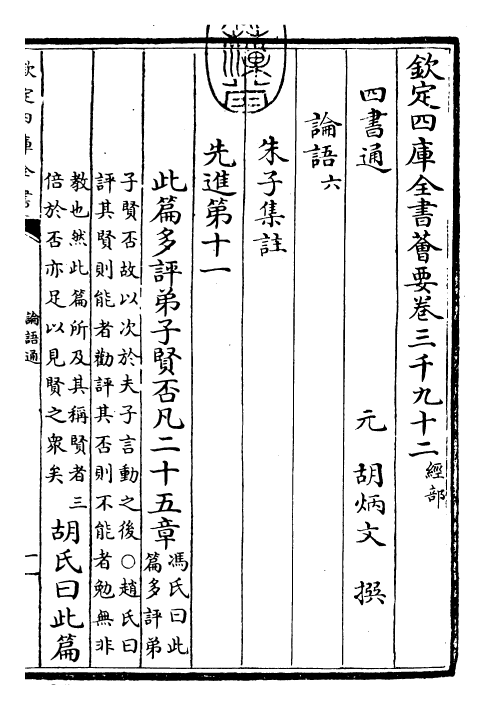 欽定四庫全書薈要卷三千九十二 經部
四書通 元 胡炳文 撰
論語六
朱子集註
先進第十一
此篇多評弟子賢否凡二十五章 馮氏曰此
篇多評弟
子賢否故以次於夫子言動之後○趙氏曰
評其賢則能者勸評其否則不能者勉無非
教也然此篇所及其稱賢者三
倍於否亦足以見賢之衆矣 胡氏曰此篇
欽定四庫全書
論語通
一